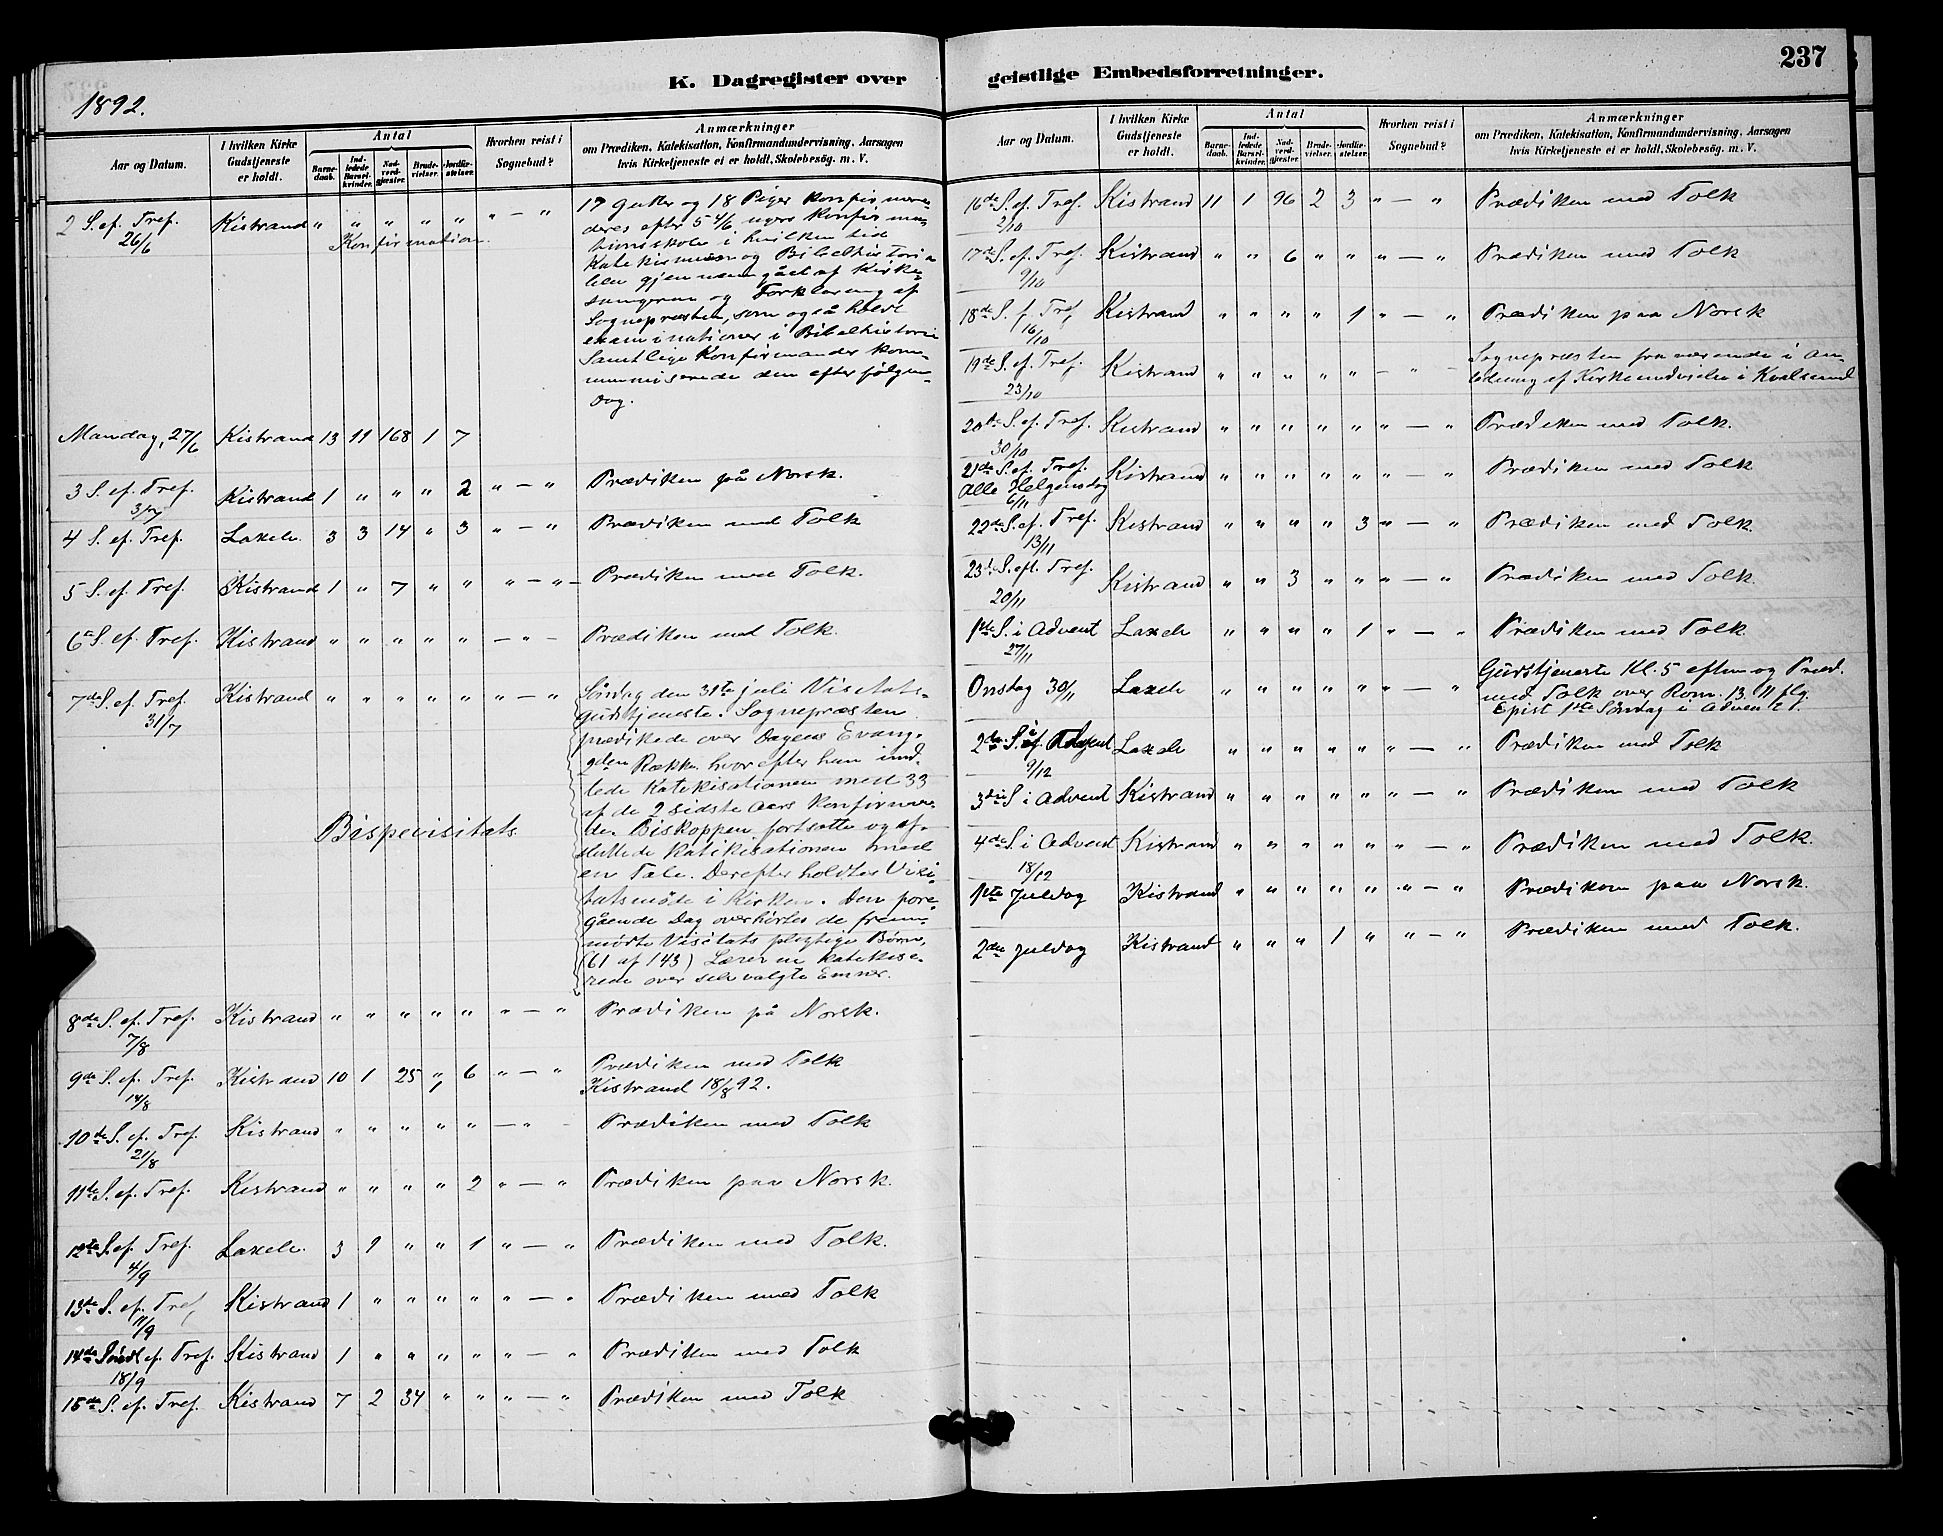 K. Dagregister over
1892.
Aar og Datum.
I hvilken Kirke Gudstjeneste er holdt.
Antal
Barne-daab.
Ind-ledede Barsel-kvinder.
Nad-verd-gjæster.
Brude-vielser.
Jordfæ-stelser.
Hvorhen reist i Sognebud?
Anmærkninger
om Prædiken, Katekisation, Konfirmandundervisning, Aarsagen
hvis Kirketjeneste ei er holdt, Skolebesög. m. V.
2 S. ef. Tref. 26/6 Kistrand " " " " " " — " 17 gutter og 18 Piger konfirmere-
Konfirmation.
deres efter 5 4/6 ugers konfirma-
tionsskole i hvilken tid
Katekismen og Bibelhistorie
blev gjennemgået af Kirke-
sangeren og Forklaring af
Sognepresten, som også holdt
examinationer i Bibelhistorie
Samtlige Konfirmander kom-
muniserede den efterfølgen-
dag.
Mandag, 27/6 Kistrand 13 11 168 1 7
3 S. ef. Tref. 3/7 Kistrand 1 " " " 2 " — " Prædiken på Norsk.
4 S. ef. Tref. Laxelv. 3 3 14 " 3 " — " Prædiken med Tolk
5 S. ef. Tref. Kistrand 1 " 7 " " " — " Prædiken med Tolk.
6te S. ef. Tref. Kistrand " " " " " — " — Prædiken med Tolk.
7de S. ef. Tref. 31/7 Kistrand " " " " " " — " Søndag den 31te juli Visitats-
gudstjeneste. Sognepræsten
prædikede over Dagens Evang.
2den Række. hvorefter han ind
lede Katekisationen med 33
af de 2 sidste Aars konfirmere-
de. Biskoppen fortsatte og af-
Bispevisitats
sluttede katekisationen med
en Tale. Derefter holdtes Visi-
tatsmøde i Kirken. Den fore-
gående Dag overhørtes de frem-
mødte Visitats pligtige Børn,
(61 af 143) Læreren katekise-
rede over selvvalgte Emner.
8de S. ef. Tref. 7/8 Kistrand " " " " " " — " Prædiken på Norsk.
9de S. ef. Tref. 14/8 Kistrand 10 1 25 " 6 " — " Prædiken med Tolk
Kistrand 18/8 92.
10de S. ef. Tref. 21/8 Kistrand " " " " " — " - Prædiken med Tolk
11te S. ef. Tref. Kistrand " " " " 2 " — " Prædiken paa Norsk.
12te S. ef. Tref. 4/9 Laxelv. 3 9 " " 1 " — " Prædiken med Tolk.
13de S. ef. Tref. 11/9 Kistrand 1 " " " " " — " Prædiken med Tolk
14de Sønd ef. Tref. 18/9 Kistrand 1 " " " " " — " Prædiken med Tolk
15de S. ef. Tref. Kistrand 7 2 34 " " " — " Prædiken med Tolk
geistlige Embedsforretninger.
237
Aar og Datum.
I hvilken Kirke Gudstjeneste er holdt.
Antal
Barne-daab.
Ind-ledede Barsel-kvinder.
Nad-verd-gjæster.
Brude-vielser.
Jordfæ-stelser.
Hvorhen reist i Sognebud?
Anmærkninger
om Prædiken, Katekisation, Konfirmandundervisning, Aarsagen
hvis Kirketjeneste ei er holdt, Skolebesög. m. V.
16de S. ef. Tref. 2/10 Kistrand 11 1 96 2 3 " — " Prædiken med Tolk
17de S. ef. Tref. 9/10 Kistrand " " 6 " " " — " Prædiken med Tolk
18de S. f. Tref. 16/10 Kistrand " " " " 1 " — " Prædiken paa Norsk
19de S. ef. Tref. 23/10 Kistrand " " " " " — " — Sognepræsten fraværende i an-
ledning af Kirkeindvielse i Kvalsund
20de S. ef. Tref. 30/10 Kistrand " " " " " " — " Prædiken med Tolk.
21de S. ef. Tref. Kistrand " " " " " " — " Prædiken med Tolk
Alle Helgensdag 6/11
22de S. ef. Tref. 13/11 Kistrand " " " " 3 " — " Prædiken med Tolk.
23de S. eft. Tref. 20/11 Kistrand " " 3 " " " — " Prædiken med Tolk.
1ste S. i Advent 27/11 Laxelv " " " " 1 " — " Prædiken med Tolk
Onsdag 30/11 Laxelv " " " " " " — " Gudstjeneste Kl. 5 eftm og Præd.
med Tolk over Rom. 13. 11 flg.
Epist 1ste Søndag i Advent.
2den S. i Advent 9/12 Laxelv " " " " " " — " Prædiken med Tolk
3die S i Advent Kistrand " " " " " " — " Prædiken med Tolk
4de S i Advent 18/12 Kistrand " " " " " " — " Prædiken med Tolk.
1ste Juldag Kistrand " " " " " " — " Prædiken paa Norsk.
2den Juldag Kistrand " " " 1 " " — " Prædiken med Tolk.